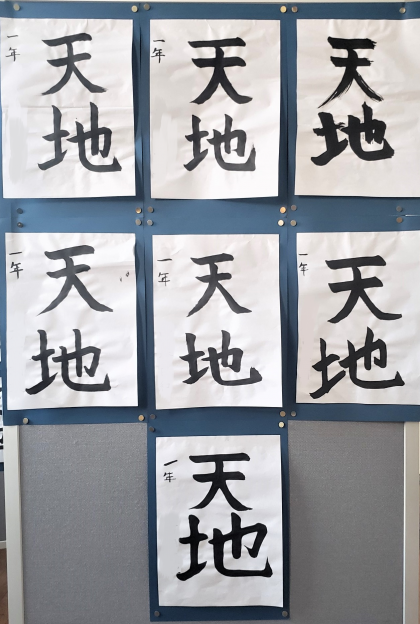 天地
一年
天地
一年
天地
天地
一年
天地
一年
天地
一年
天地
一年